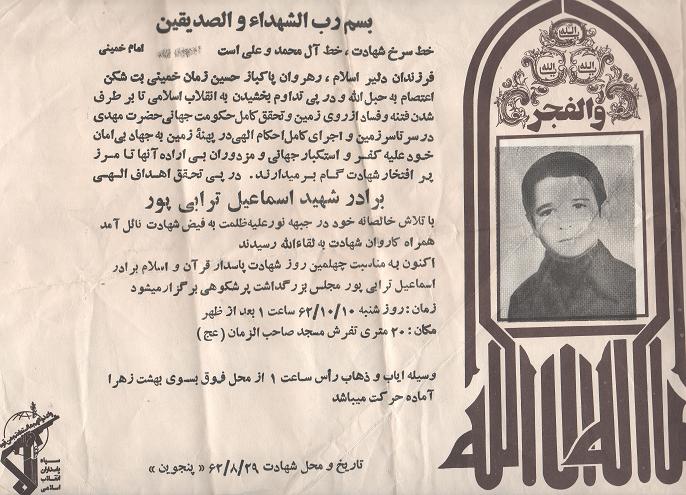 بسم رب الشهداء و الصدیقین
خط سرخ شهادت، خط آل محمد و علی است امام خمینی
فرزندان دلیر اسلام، رهروان پاکباز حسین زمان خمینی بت شکن
اعتصام به حبل الله و در پی تداوم بخشیدن به انقلاب اسلامی تا بر طرف
شدن فتنه و فساد از روی زمین و تحقق کامل حکومت جهانی حضرت مهدی
در سر تاسر زمین و اجرای کامل احکام الهی در پهنهٔ زمین به جهاد بی امان
خود علیه کفر و استکبار جهانی و مزدوران بی اراده آنها تا مرز
پر افتخار شهادت گام بر میدارند. در پی تحقق اهداف الهی
برادر شهید اسماعیل ترابی پور
با تلاش خالصانه خود در جبهه نور علیه ظلمت به فیض شهادت نائل آمد
همراه کاروان شهادت به لقاءالله رسیدند
اکنون به مناسبت چهلمین روز شهادت پاسدار قرآن و اسلام برادر
اسماعیل ترابی پور مجلس بزرگداشت پرشکوهی برگزار میشود
زمان: روز شنبه ۶۲/۱۰/۱۰ ساعت ۱ بعد از ظهر
مکان: ۲۰ متری تفرش مسجد صاحب الزمان (عج)
وسیله ایاب و ذهاب رأس ساعت ۱ از محل فوق بسوی بهشت زهرا
آماده حرکت میباشد
تاریخ و محل شهادت ۶۲/۸/۲۹ «پنجوین»
الله
الله الله
والفجر
سپاه
پاسداران
انقلاب
اسلامی